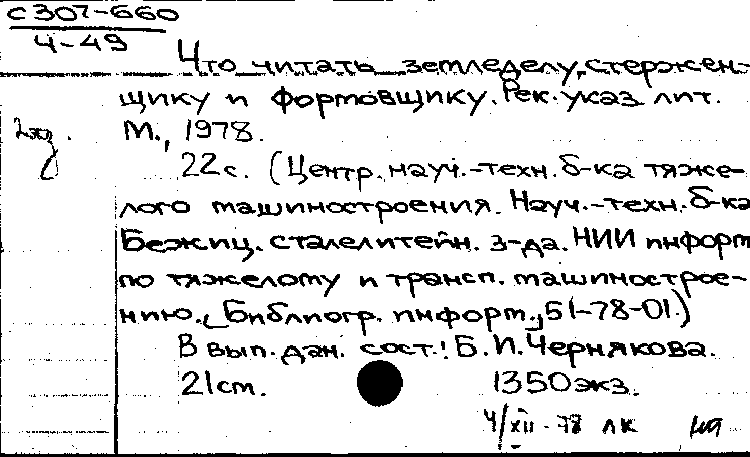 с307-660
4-49
Что читать земледелу, стержен-
щику и формовщику. Рек. указ. лит.
2 экз.
М., 1978.
22 с. (Центр. науч.-техн. б-ка тяже-
лого машиностроения. Науч.-техн. б-ка
Бежиц. сталелитейн. з-да. НИИ информ
по тяжелому и трансп. машинострое-
нию. (Библиогр. информ., 51-78-01.)
В вып. дан. сост.: Б. И. Чернякова.
21 см. 1350 экз.
4/XII-78 ЛК